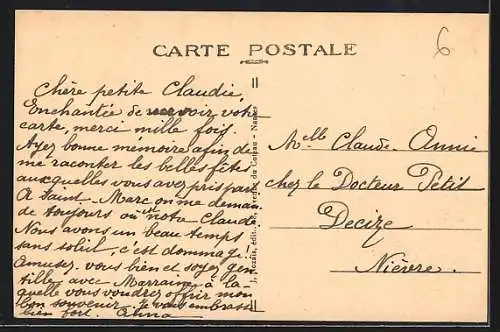 CARTE POSTALE
6
Chère petite Claudie,
Enchantée de recevoir votre
carte, merci mille fois.
Ayez bonne mémoire afin de
me raconter les belles fêtes
auxquelles vous avez pris part
A Saint-Marc, on me deman
de toujours où "notre Claude"
Nous avons un beau temps
sans soleil, c'est dommage!
Amusez-vous bien et soyez gen
tille avec Marraine à la-
quelle vous voudrez offrir mon
bon souvenir. Je vous embrasse
bien fort. Anna
J. Nozais, édit., Nantes
Melle Claude-Annie
chez le Docteur Petit
Decize
Nièvre.